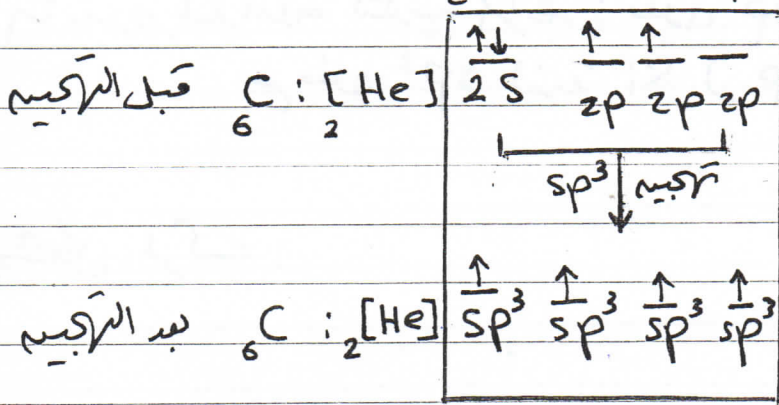 قبل التهجين ₆C : ₂[He] ↑↓ ↑ ↑
2S 2p 2p 2p
sp³ تهجين
بعد التهجين ₆C : ₂[He] ↑ ↑ ↑ ↑
sp³ sp³ sp³ sp³